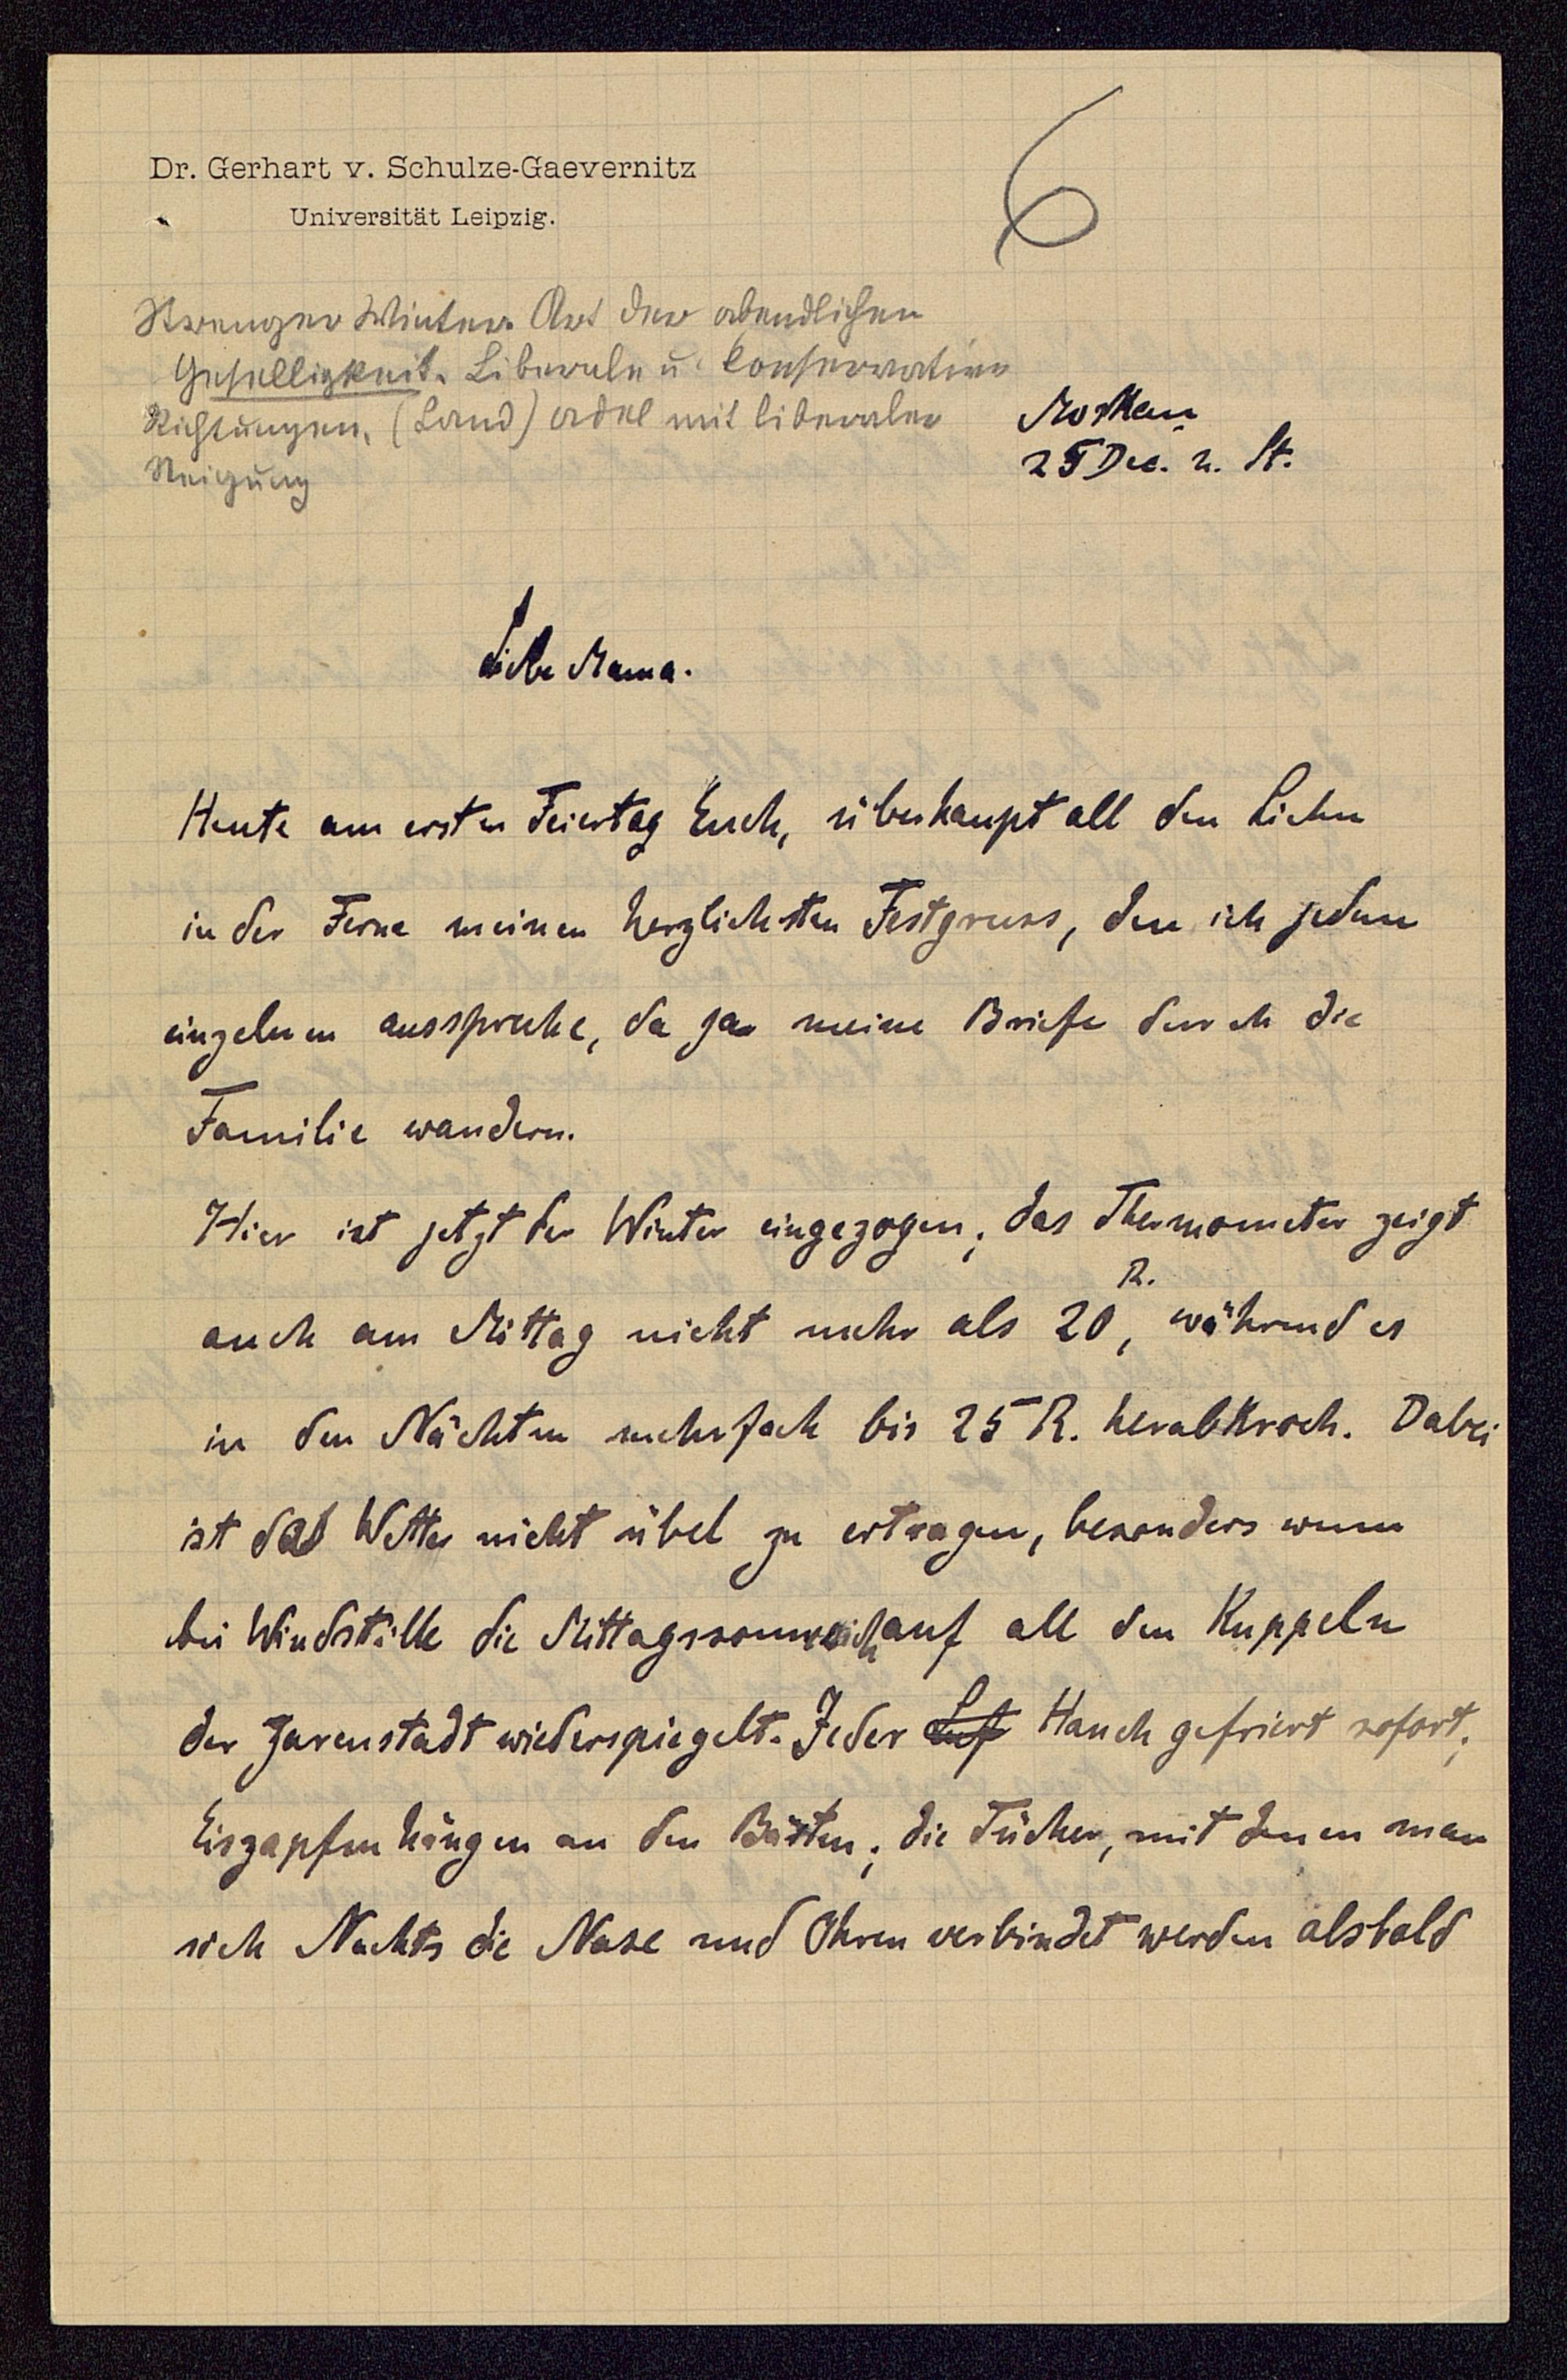 Dr. Gerhart v. Schulze-Gaevernitz
Universität Leipzig.
6
Strenger Winter. Art der abendlichen
Geselligkeit. Liberale u. konservative
Richtungen, (Land) adel mit liberaler
Neigung
Moskau
25 Dec. n. St.
Liebe Mama.
Heute am ersten Feiertag Euch, überhaupt all den Lieben
in der Ferne meinen herzlichsten Festgruss, den ich jedem
einzelnen ausspreche, da ja meine Briefe durch die
Familie wandern.
Hier ist jetzt der Winter eingezogen; das Thermometer zeigt
auch am Mittag nicht mehr als 20 R., während es
in den Nächten mehrfach bis 25 R. herabkroch. Dabei
ist das Wetter nicht übel zu ertragen, besonders wenn
bei Windstille die Mittagssonne sich auf all den Kuppeln
der Zarenstadt wiederspiegelt. Jeder Luf Hauch gefriert sofort;
Eiszapfen hängen an den Bärten; die Tücher, mit denen man
sich Nachts die Nase und Ohren verbindet werden alsbald